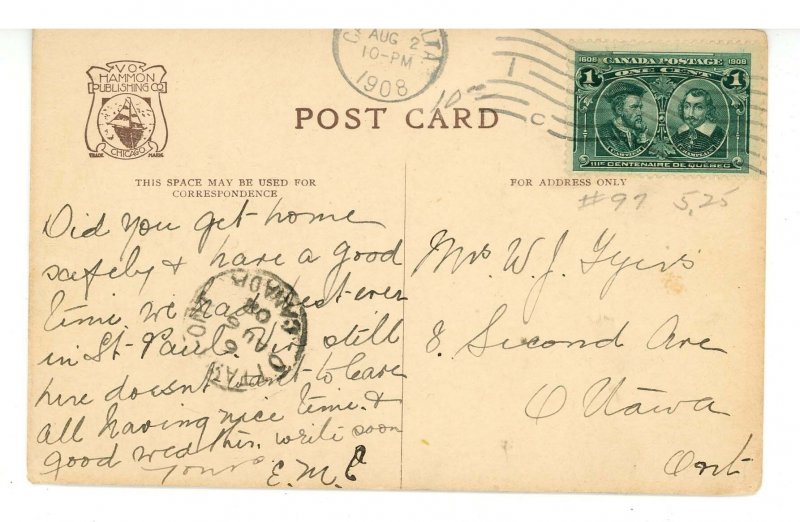 VO
HAMMON
PUBLISHING CO
TRADE MARK
CHICAGO
AUG 2
10-PM
1908
1
C
1608 CANADA POSTAGE 1908
1 ONE CENT 1
CARTIER CHAMPLAIN
IIIe CENTENAIRE DE QUÉBEC
POST CARD
THIS SPACE MAY BE USED FOR
CORRESPONDENCE
FOR ADDRESS ONLY
#97 5,25
Did you get home
safely & have a good
time. we had best ever
in St-Paul. still
here doesn't want to leave
all having nice time. &
good weather. write soon
Yours E.M.C
OTTAWA
AU 6
08
CANADA
Mrs W. J.
8. Second Ave
Ottawa
Ont